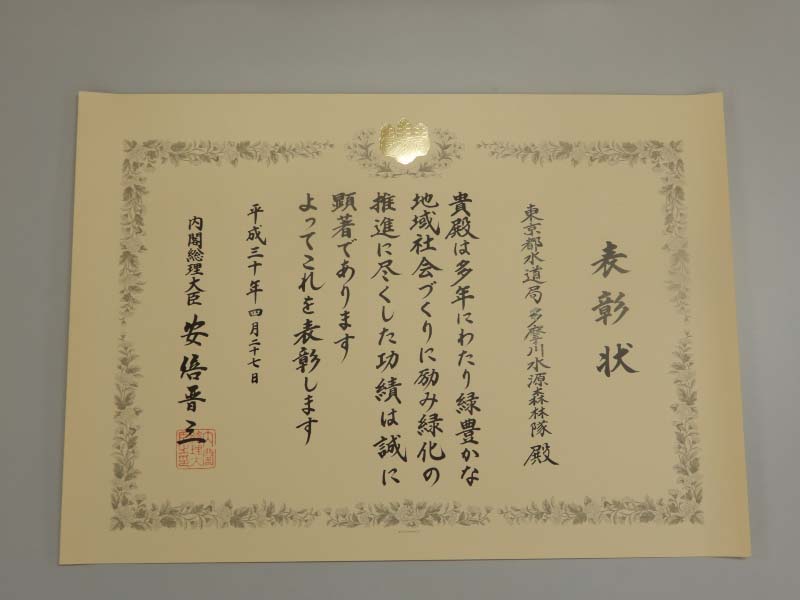 表彰状
東京都水道局多摩川水源森林隊 殿
貴殿は多年にわたり緑豊かな
地域社会づくりに励み緑化の
推進に尽くした功績は誠に
顕著であります
よってこれを表彰します
平成三十年四月二十七日
内閣総理大臣 安倍晋三